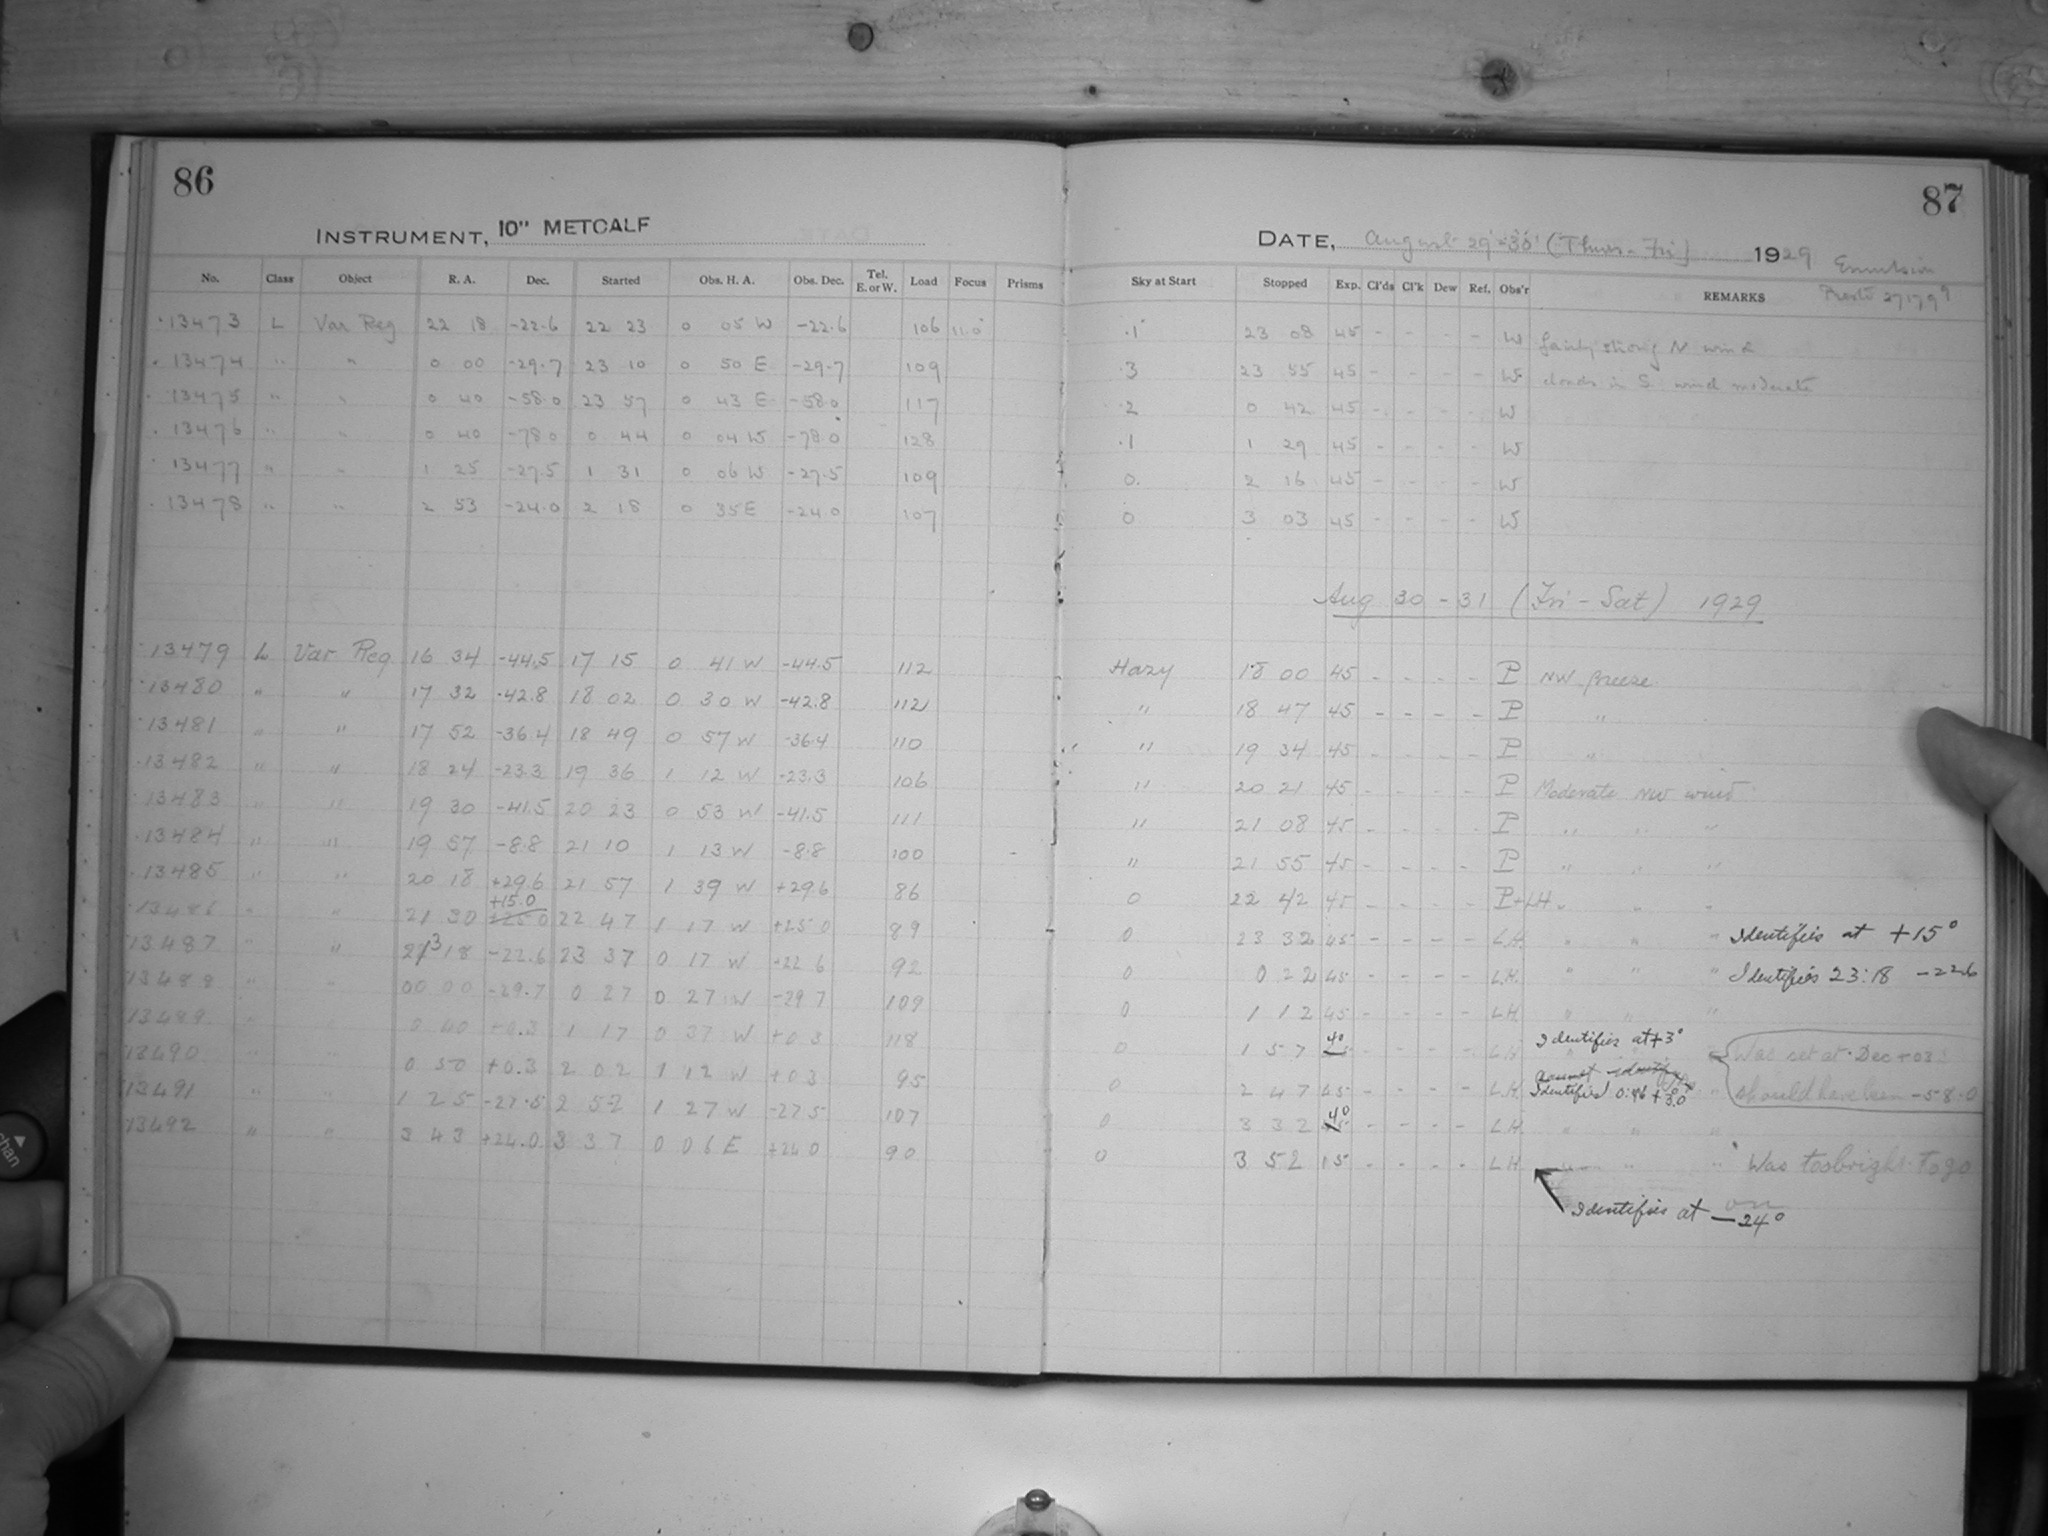 86
INSTRUMENT, 10" METCALF
No. Class Object R. A. Dec. Started Obs. H. A. Obs. Dec. Tel. E. or W. Load Focus Prisms
13473 L Var Reg 22 18 -22.6 22 23 0 05 W -22.6 106 11.0
13474 " " 0 00 -29.7 23 10 0 50 E -29.7 109
13475 " " 0 40 -58.0 23 57 0 43 E -58.0 117
13476 " " 0 40 -78.0 0 44 0 04 W -78.0 128
13477 " " 1 25 -27.5 1 31 0 06 W -27.5 109
13478 " " 2 53 -24.0 2 18 0 35 E -24.0 107
13479 L Var Reg 16 34 -44.5 17 15 0 41 W -44.5 112
13480 " " 17 32 -42.8 18 02 0 30 W -42.8 112
13481 " " 17 52 -36.4 18 49 0 57 W -36.4 110
13482 " " 18 24 -23.3 19 36 1 12 W -23.3 106
13483 " " 19 30 -41.5 20 23 0 53 W -41.5 111
13484 " " 19 57 -8.8 21 10 1 13 W -8.8 100
13485 " " 20 18 +29.6 21 57 1 39 W +29.6 86
+15.0
13486 " " 21 30 +25.0 22 47 1 17 W +25.0 89
13487 " " 23 18 -22.6 23 37 0 17 W +22.6 92
13488 " " 00 00 -29.7 0 27 0 27 W -29.7 109
13489 " " 0 40 +0.3 1 17 0 37 W +0.3 118
13490 " " 0 50 +0.3 2 02 1 12 W +0.3 95
13491 " " 1 25 -27.5 2 52 1 27 W -27.5 107
13492 " " 3 43 +24.0 3 37 0 06 E +24.0 90
87
DATE, August 29-30 (Thurs-Fri) 1929
Emulsion
Sky at Start Stopped Exp. Cl'ds Cl'k Dew Ref. Obs'r REMARKS
.1 23 08 45 - - - - W fairly strong N wind
.3 23 55 45 - - - - W clouds in S. wind moderate
.2 0 42 45 - - - - W
.1 1 29 45 - - - - W
0 2 16 45 - - - - W
0 3 03 45 - - - - W
Aug 30 - 31 (Fri - Sat) 1929
Hazy 18 00 45 - - - - P NW breeze
" 18 47 45 - - - - P "
" 19 34 45 - - - - P "
" 20 21 45 - - - - P Moderate NW wind
" 21 08 45 - - - - P " " "
" 21 55 45 - - - - P " " "
0 22 42 45 - - - - P+LH " " "
0 23 32 45 - - - - L.H. " " " Identifies at +15°
0 0 22 45 - - - - L.H. " " " Identifies 23:18 -22.6
0 1 12 45 - - - - LH " " "
0 1 57 40 - - - - LH Identifies at +3° Was set at Dec +03
0 2 47 45 - - - - L.H. cannot identify Identifies 0:46 +3.0 should have been -58.0
0 3 32 40 - - - - L.H. " " "
0 3 52 15 - - - - LH " " " Was too bright to go on
Identifies at -24°